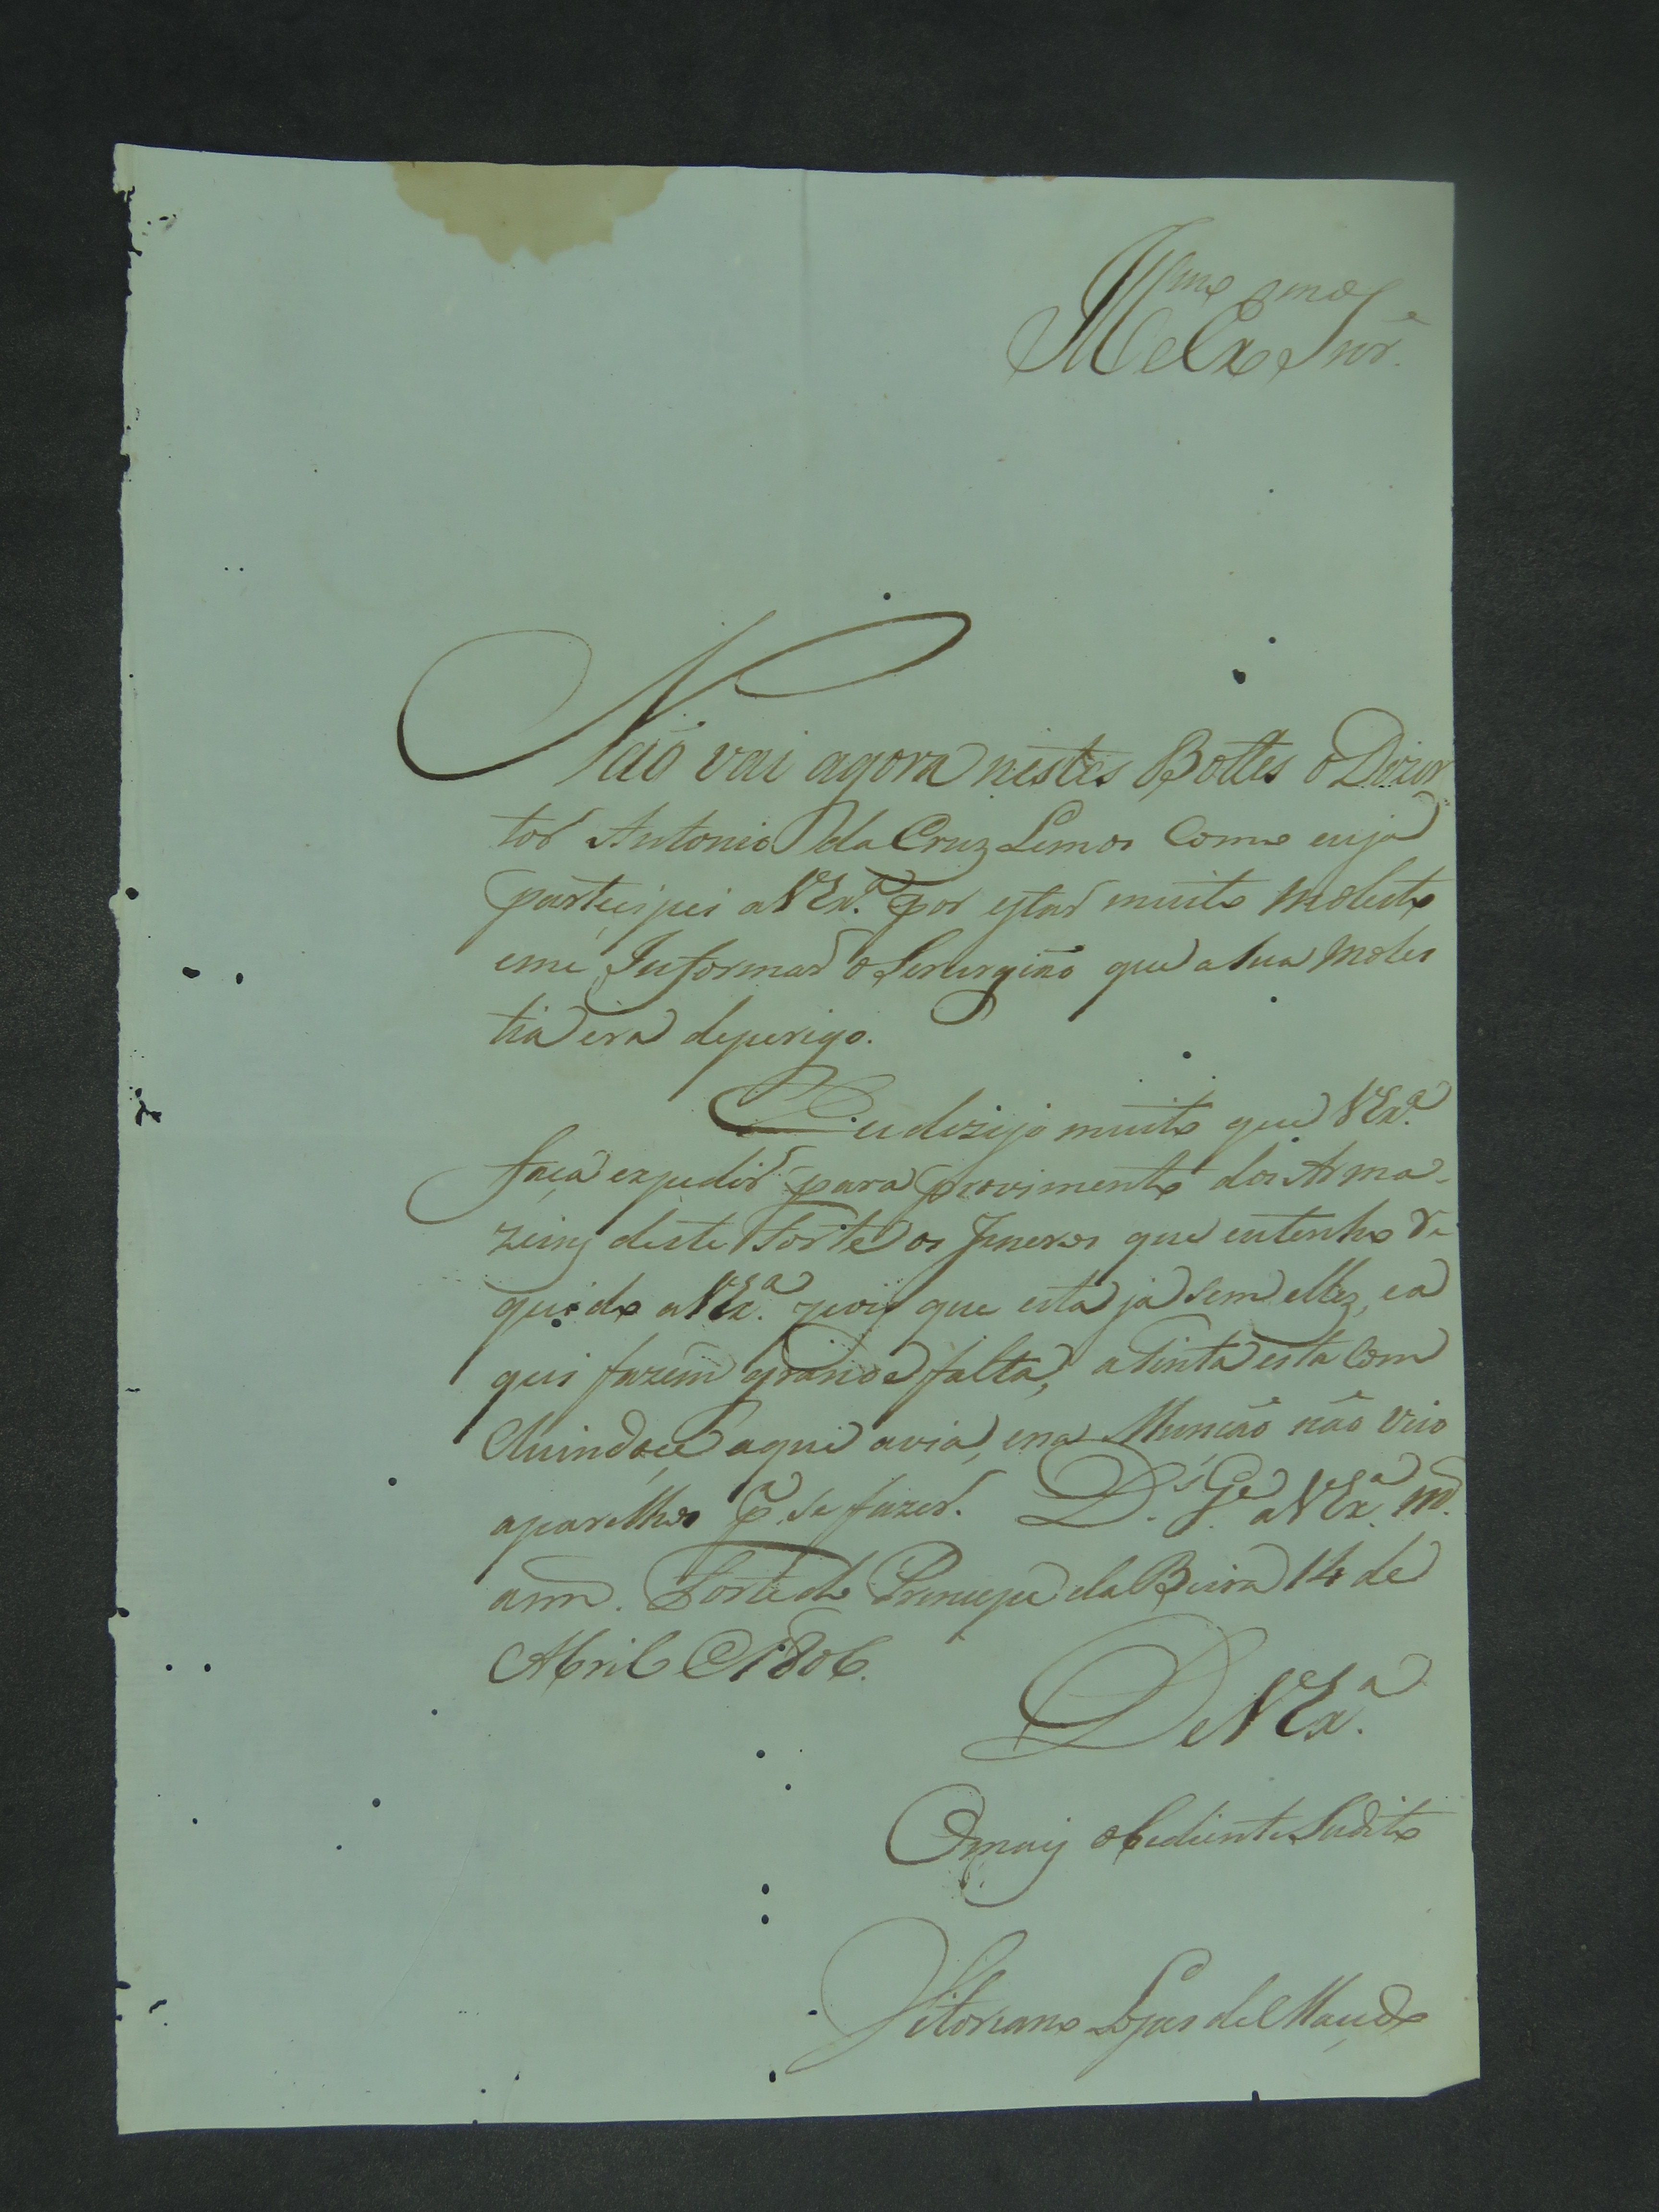 Illmo e Exmo Snõr.
Não vai agora nestes Bottes o Dizer
tor Antonio da Cruz Lemos Como eu ja
participei a VExa. por estar muito molesto
e me Informar o Serurgião que a sua moles
tia era de perigo.
Eu dizejo muito que VExa.
faça expedir para provimento dos Arma-
zeins deste Forte os Jeneros que eu tenho re
quido a VExa. pois que está já sem elles, e a
qui fazem grande falta, a tinta está com
cluindoce a que avia, e na Munção não veio
aparelhos pa. se fazer. Ds. Ge. a VExa. ms.
ann. Forte do Principe da Beira 14 de
Abril 1806.
De VExa.
O mais obediente Sudito
Vitoriano Lopes de Macedo